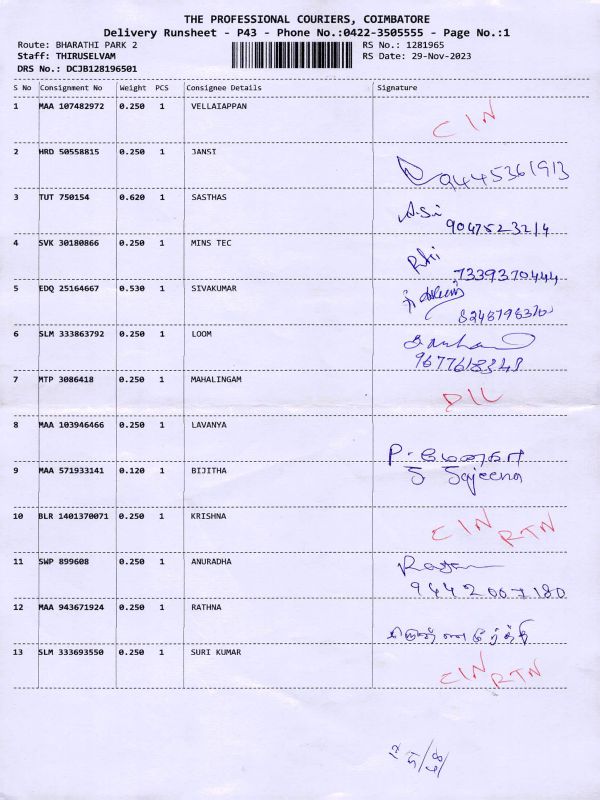 THE PROFESSIONAL COURIERS, COIMBATORE
Delivery Runsheet - P43 - Phone No.:0422-3505555 - Page No.:1
Route: BHARATHI PARK 2 RS No.: 1281965
Staff: THIRUSELVAM RS Date: 29-Nov-2023
DRS No.: DCJB128196501
S No Consignment No Weight PCS Consignee Details Signature
1 MAA 107482972 0.250 1 VELLAIAPPAN
CIN
2 HRD 50558815 0.250 1 JANSI
9445361913
3 TUT 750154 0.620 1 SASTHAS
9047523214
4 SVK 30180866 0.250 1 MINS TEC
7339370444
5 EDQ 25164667 0.530 1 SIVAKUMAR
6 SLM 333863792 0.250 1 LOOM
7 MTP 3086418 0.250 1 MAHALINGAM
8 MAA 103946466 0.250 1 LAVANYA
P. மேனகா
9 MAA 571933141 0.120 1 BIJITHA
Sajeena
10 BLR 1401370071 0.250 1 KRISHNA
CIN RTN
11 SWP 899608 0.250 1 ANURADHA
9442007180
12 MAA 943671924 0.250 1 RATHNA
13 SLM 333693550 0.250 1 SURI KUMAR
CIN RTN